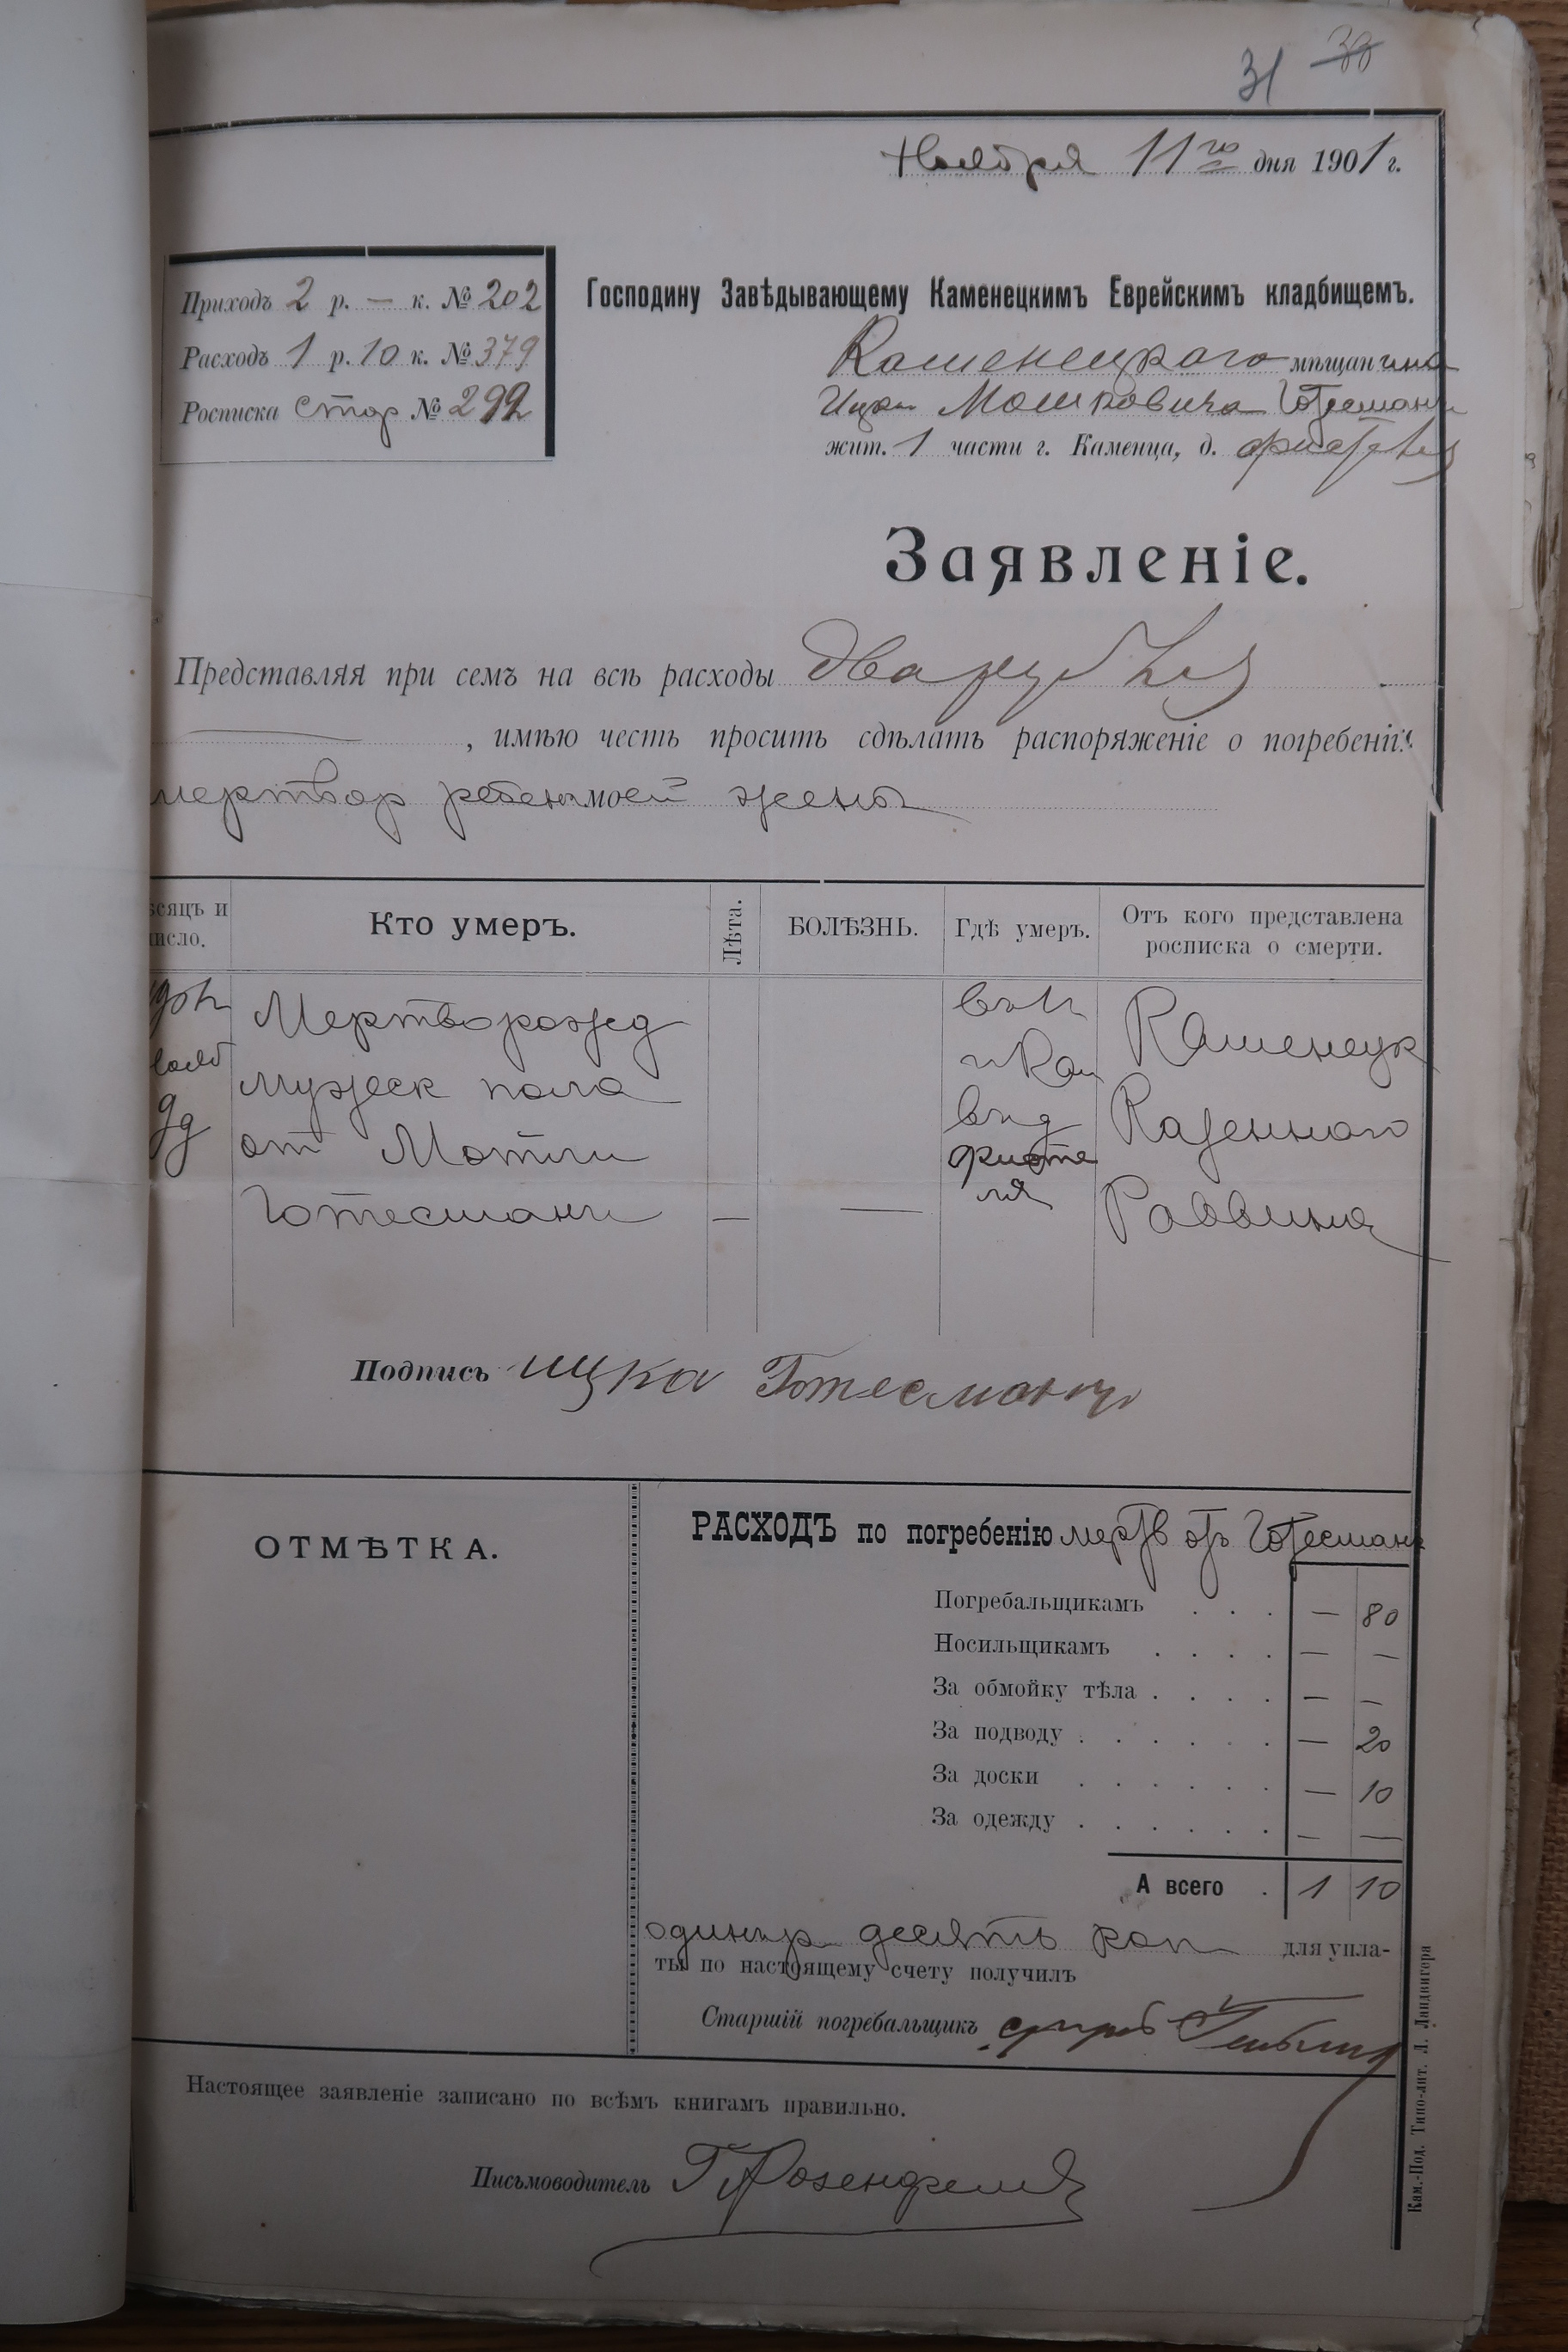 31 38
Ноября 11го дня 1901 г.
Приходъ 2 р. — к. № 202
Расходъ 1 р. 10 к. № 379
Росписка стор № 299
Господину Завѣдывающему Каменецкимъ Еврейскимъ кладбищемъ.
Каменецкого мѣщанина
Ицки Мошковича Готесмана
жит. 1 части г. Каменца, д.
Заявленіе.
Представляя при семъ на всѣ расходы два рубля
, имѣю честь просить сдѣлать распоряженіе о погребеніи
мертвор ребен моей жены
сяцъ и исло.
Кто умеръ.
Лѣта.
БОЛѢЗНЬ.
Гдѣ умеръ.
Отъ кого представлена росписка о смерти.
Мертворожд
мужеск пола
от Мотли
Готесман
— —
въ 1ч
г Кам
въ д
фистеля
Каменецк
Казенного
Раввина
Подпись ицка Готесман
ОТМѢТКА.
РАСХОДЪ по погребенію мертв отъ Готесман
Погребальщикамъ . . . — 80
Носильщикамъ . . . . — —
За обмойку тѣла . . . . — —
За подводу . . . . . . — 20
За доски . . . . . . — 10
За одежду . . . . . . — —
А всего . 1 10
одинъ р десять коп для упла-
ты по настоящему счету получилъ
Старшій погребальщикъ
Настоящее заявленіе записано по всѣмъ книгамъ правильно.
Письмоводитель Г Розенфельд
Кам.-Под. Типо-лит. Л. Ландвигера